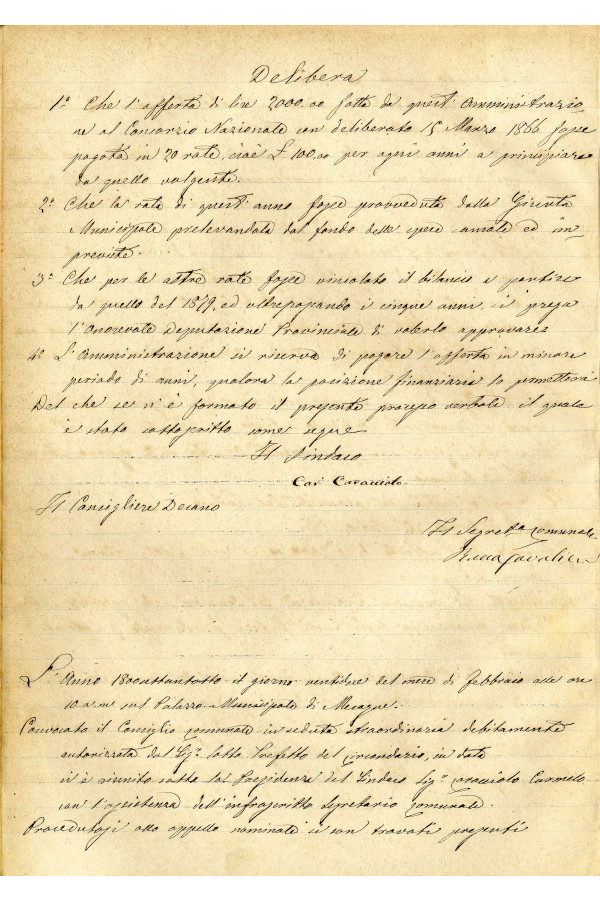 Delibera
1° Che l'offerta di lire 2000.00 fatta da quest'Amministrazio
ne al Consorzio Nazionale con deliberato 15 Marzo 1866 fosse
pagata in 20 rate, cioè £ 100,00 per ogni anni a principiare
da quello volgente.
2° Che la rata di quest'anno fosse provveduta dalla Giunta
Municipale prelevandola dal fondo delle spese casuale ed im
previste.
3° Che per le altre rate fosse vincolato il bilancio a partire
da quello del 1879, ed oltrepassando i cinque anni si prega
l'Onorevole Deputazione Provinciale di volerlo approvare
4° L'Amministrazione si riserva di pagare l'offerta in minore
periodo di anni, qualora la posizione finanziaria lo permetterà
Del che se n'è formato il presente processo verbale il quale
è stato sottoscritto come segue
Il Sindaco
Cav. Caracciolo
Il Consigliere Decano
Il Segret° Comunale
L'Anno 1800settantotto il giorno ventidue del mese di Febbraio alle ore
10 a.m nel Palazzo Municipale di Mesagne.
Convocato il Consiglio comunale in seduta straordinaria debitamente
autorizzata dal Sig. Sotto Prefetto del circondario, in data
si è riunito sotto la Presidenza del Sindaco Sig. Caracciolo Carmelo
con l'assistenza dell'infrascritto Segretario comunale.
Procedutosi allo appello nominale si son trovati presenti